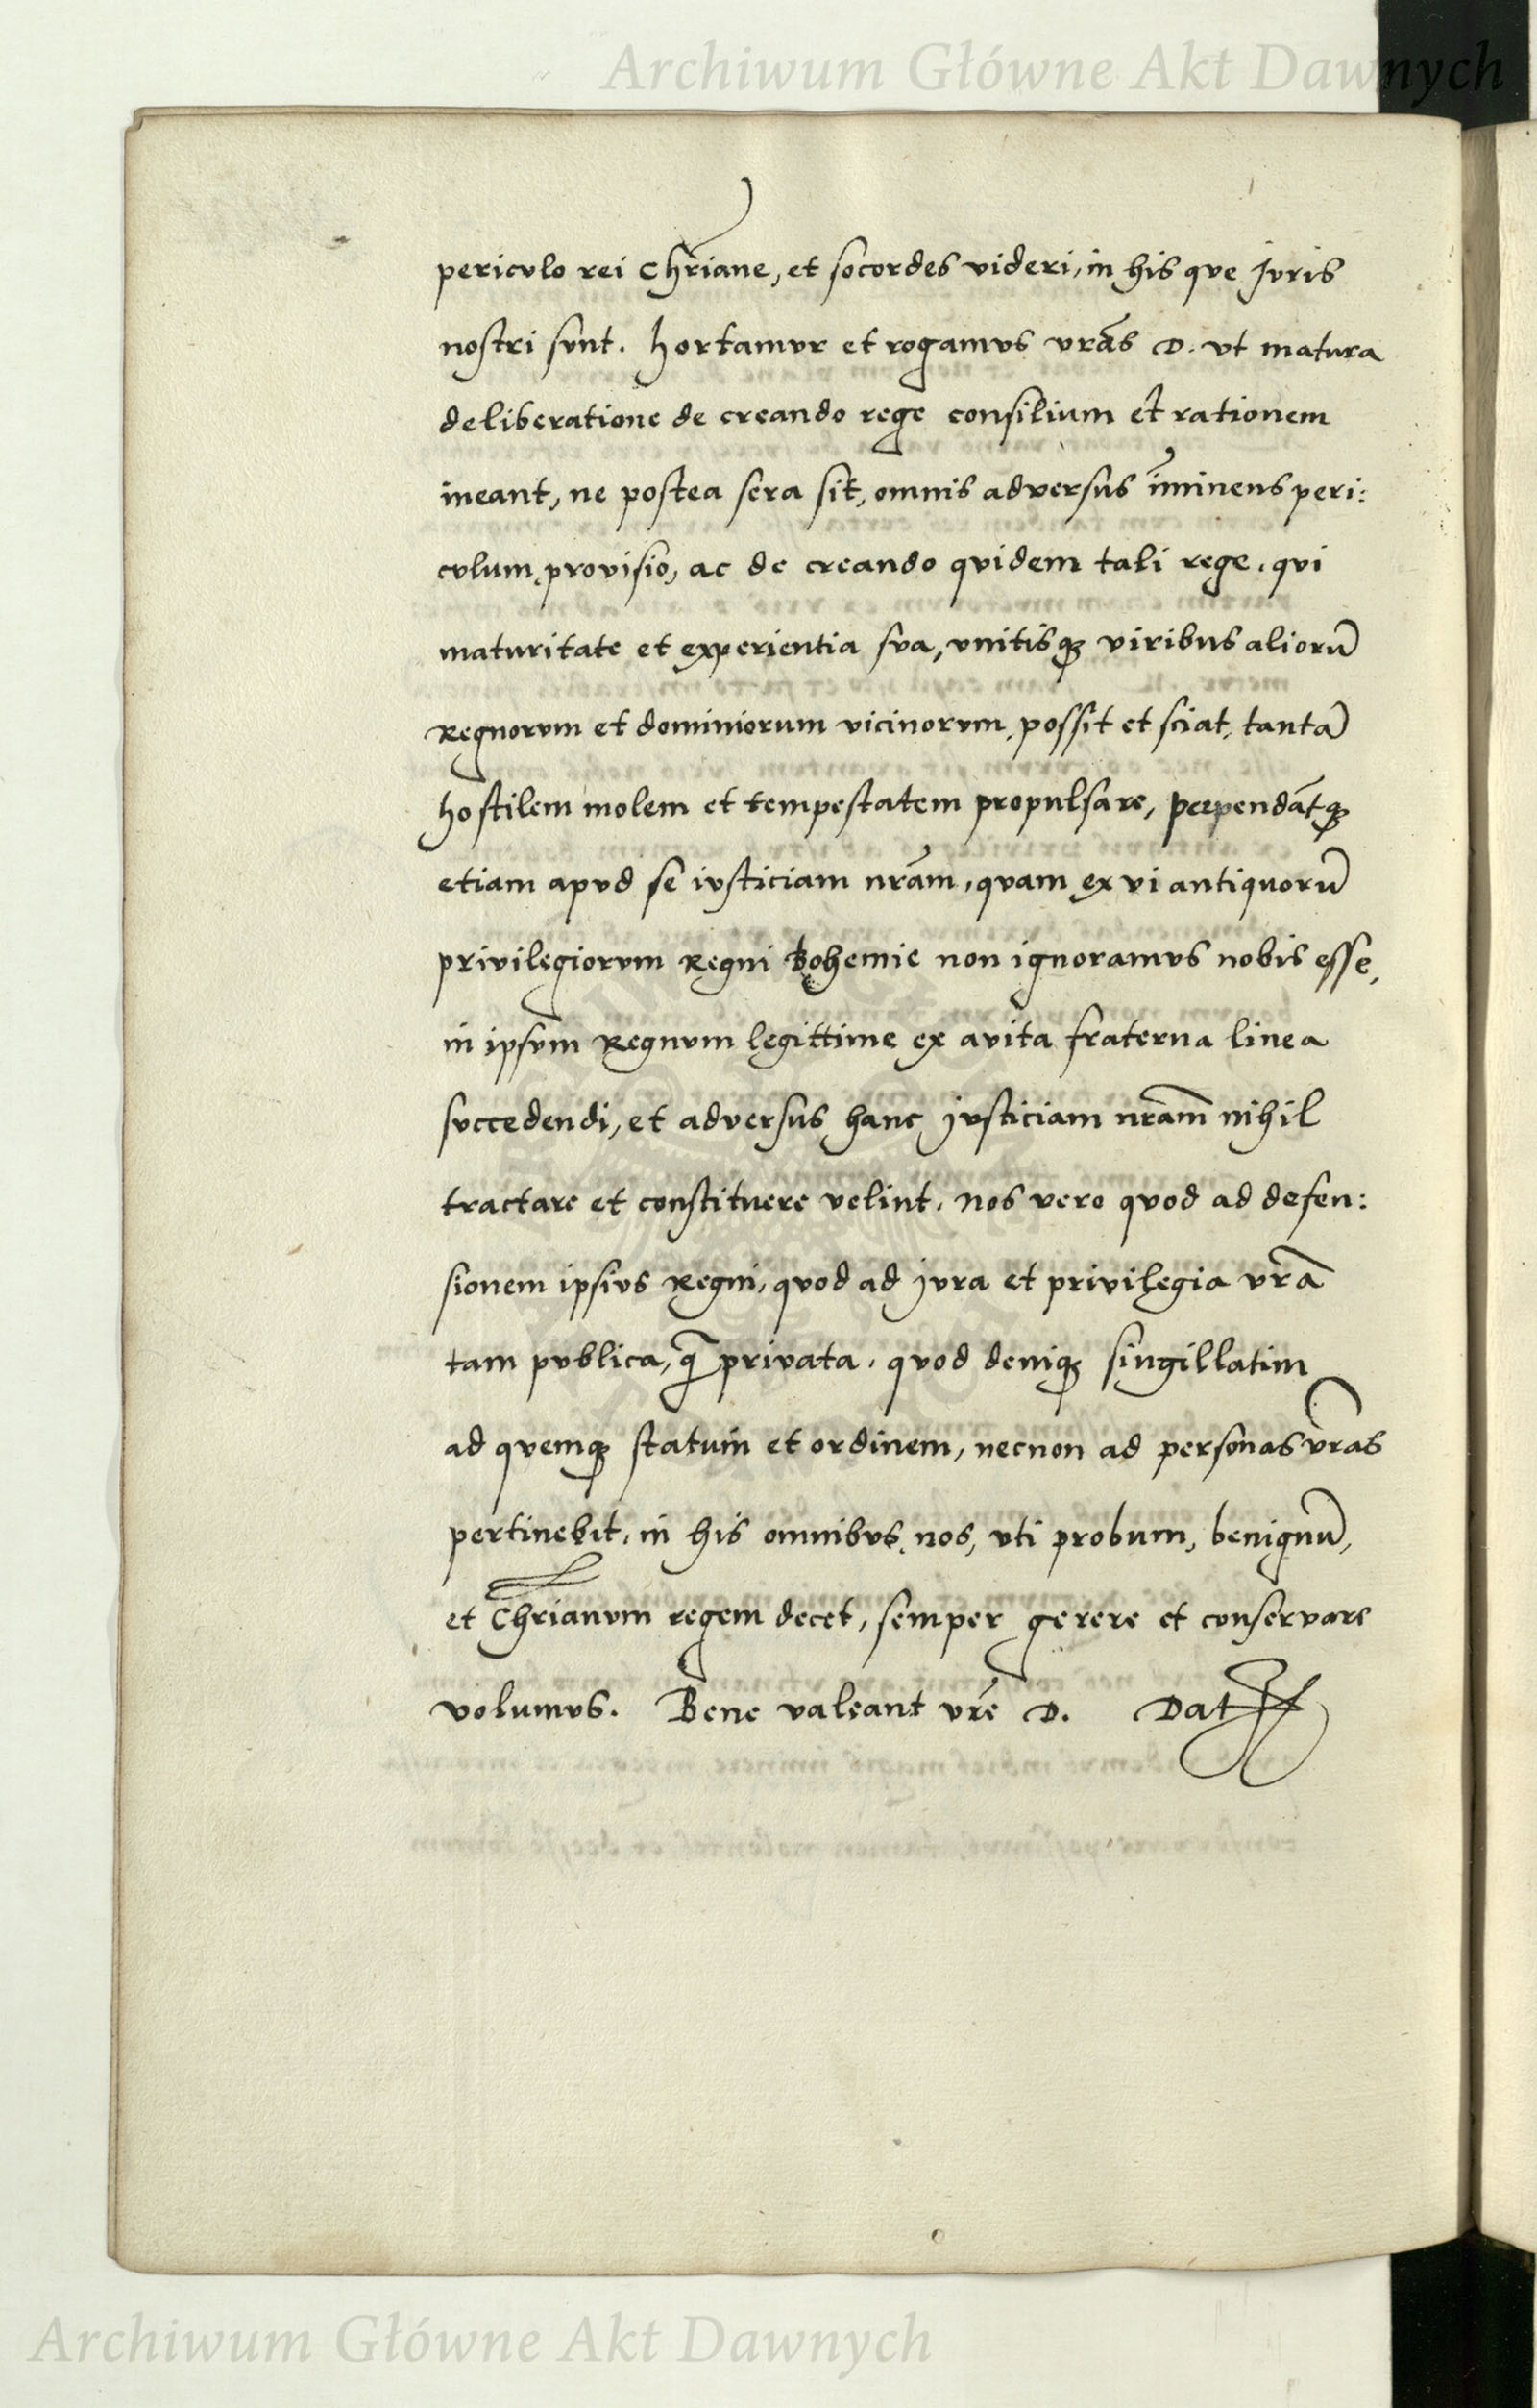 Archiwum Główne Akt Dawnych
pericvlo rei Chr̃iane, et socordes videri, in his qve Jvris
nostri svnt. hortamvr et rogamvs vrãs D. vt matura
deliberatione de creando rege consilium et rationem
ineant, ne postea sera sit, omnis adversus im̃inens peri:
cvlum, provisio, ac de creando qvidem tali rege, qvi
maturitate et experientia sva, vnitisq₃ viribus aliorũ
Regnorvm et dominiorum vicinorvm, possit et sciat, tantã
hostilem molem et tempestatem propulsare, perpendãtq₃
etiam apvd se ivsticiam nrãm, qvam ex vi antiquorũ
privilegiorvm Regni Bohemie non ignoramvs nobis esse,
in ipsvm Regnvm legittime ex avita fraterna linea
svccedendi, et adversus hanc jvsticiam nrãm nihil
tractare et constitvere velint. Nos vero qvod ad defen:
sionem ipsivs Regni, qvod ad jvra et privilegia vrã
tam pvblica, q̃ privata, qvod deniq₃ singillatim
ad qvemq₃ statum et ordinem, necnon ad personas vr̃as
pertinebit, in his omnibvs, nos, vti probum, benignũ,
et Chr̃ianvm regem decet, semper gerere et conservare
volumvs. Bene valeant vrẽ D. Dat
Archiwum Główne Akt Dawnych